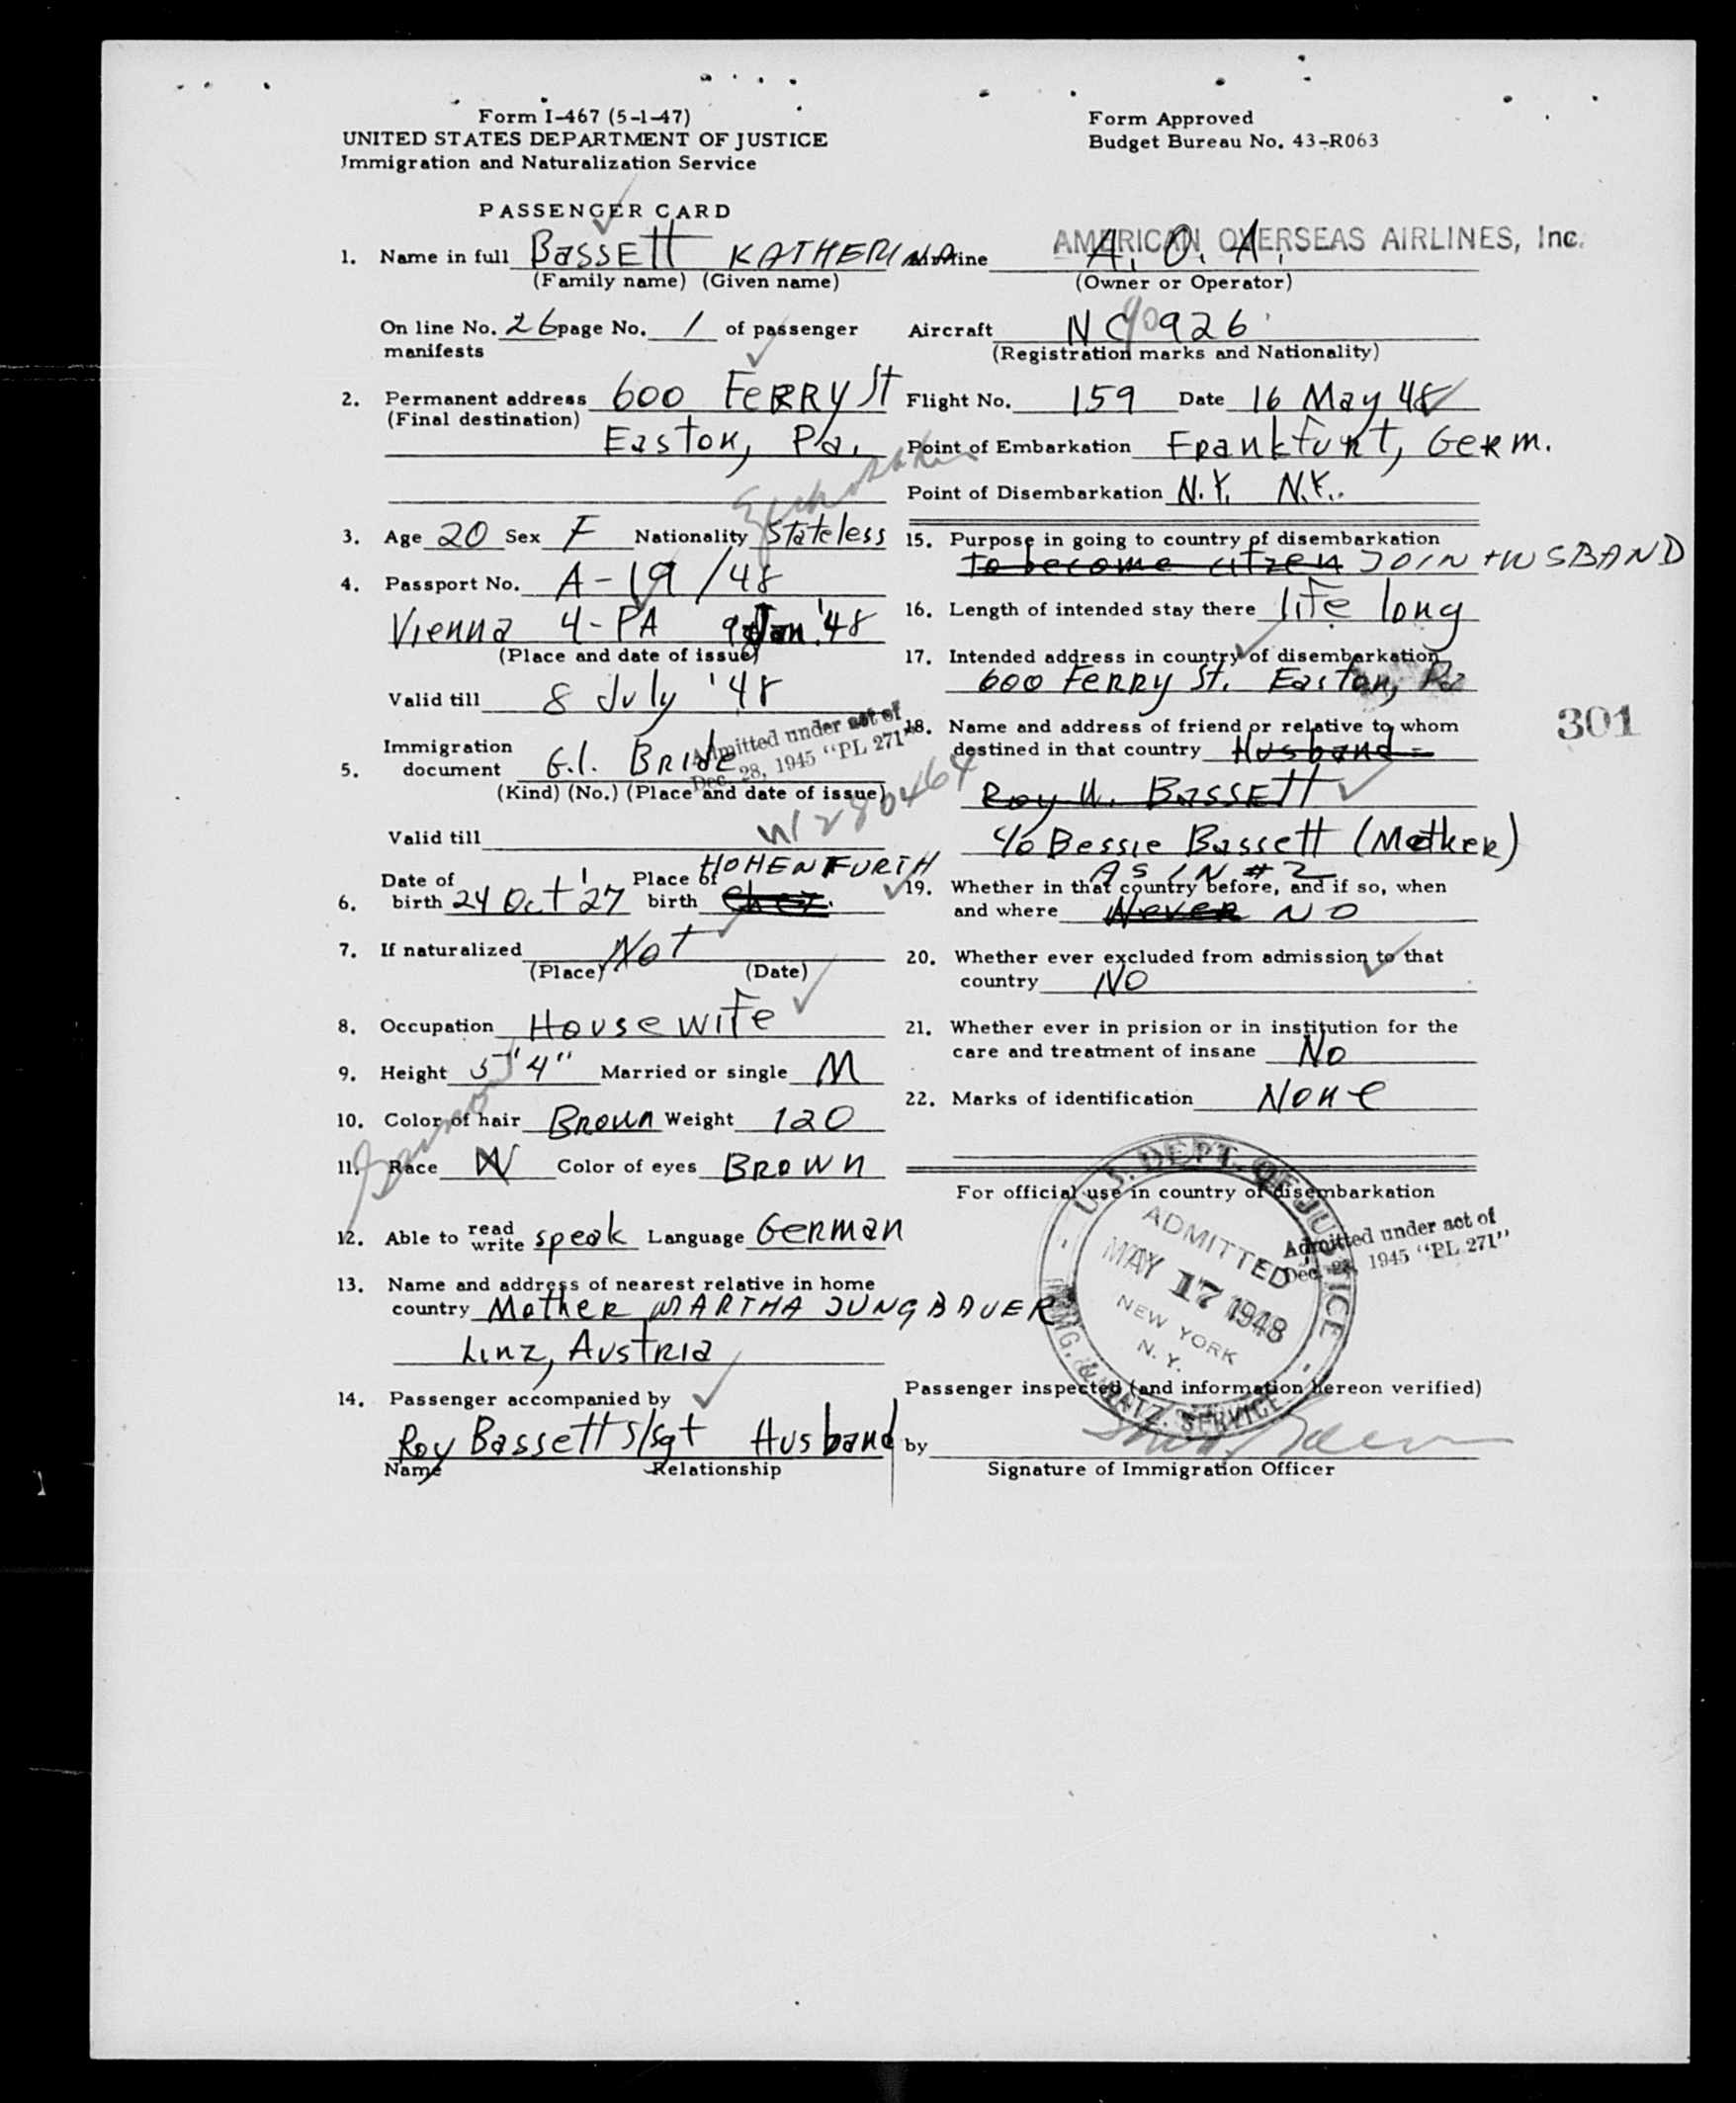 Form I-467 (5-1-47)
UNITED STATES DEPARTMENT OF JUSTICE
Immigration and Naturalization Service
Form Approved
Budget Bureau No. 43-R063
PASSENGER CARD
1. Name in full BASSETT KATHERINA
(Family name) (Given name)
On line No. 26 page No. 1 of passenger
manifests
2. Permanent address 600 FERRY St
(Final destination)
Easton, Pa.
3. Age 20 Sex F Nationality Stateless
4. Passport No. A-19/48
Vienna 4-PA 9 Jan. '48
(Place and date of issue)
Valid till 8 July '48
Admitted under act of
Dec. 28, 1945 "PL 271"
Immigration
5. document G.I. BRIDE
(Kind) (No.) (Place and date of issue)
W280464
Valid till
HOHENFURTH
6. Date of birth 24 Oct '27 Place of birth
7. If naturalized Not
(Place) (Date)
8. Occupation Housewife
9. Height 5'4" Married or single M
10. Color of hair Brown Weight 120
11. Race W Color of eyes Brown
12. Able to read write speak Language German
13. Name and address of nearest relative in home
country Mother MARTHA JUNGBAUER
Linz, Austria
14. Passenger accompanied by
Roy Bassett S/Sgt Husband
Name Relationship
AMERICAN OVERSEAS AIRLINES, Inc.
Airline A. O. A.
(Owner or Operator)
Aircraft NC90926
(Registration marks and Nationality)
Flight No. 159 Date 16 May 48
Point of Embarkation Frankfurt, Germ.
Point of Disembarkation N.Y. N.Y.
15. Purpose in going to country of disembarkation
To become citizen JOIN HUSBAND
16. Length of intended stay there life long
17. Intended address in country of disembarkation
600 Ferry St. Easton, Pa
301
18. Name and address of friend or relative to whom
destined in that country Husband -
Roy W. BASSETT
c/o Bessie Bassett (Mother)
AS IN # 2
19. Whether in that country before, and if so, when
and where Never NO
20. Whether ever excluded from admission to that
country NO
21. Whether ever in prision or in institution for the
care and treatment of insane No
22. Marks of identification None
For official use in country of disembarkation
U. S. DEPT. OF JUSTICE
IMMG. & NATZ. SERVICE
ADMITTED
MAY 17 1948
NEW YORK
N. Y.
Admitted under act of
Dec. 28, 1945 "PL 271"
Passenger inspected (and information hereon verified)
by
Signature of Immigration Officer